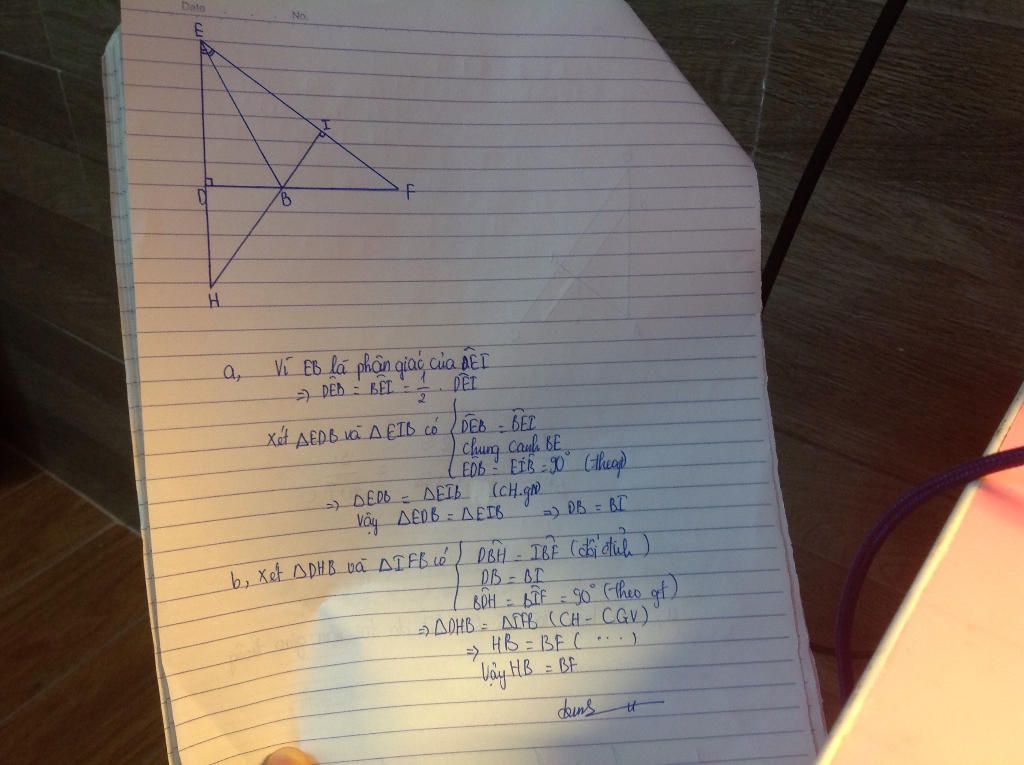 Date No.
E
I
D B F
H
a, Vì EB là phân giác của DÊI
=> DÊB = BÊI = 1/2 . DÊI
Xét ΔEDB và ΔEIB có { DÊB = BÊI
chung cạnh BE
ED̂B = EÎB = 90° (theo gt)
=> ΔEDB = ΔEIB (CH.gn)
Vậy ΔEDB = ΔEIB => DB = BI
b, Xét ΔDHB và ΔIFB có { DB̂H = IB̂F (đối đỉnh)
DB = BI
BD̂H = BÎF = 90° (theo gt)
=> ΔDHB = ΔIFB (CH - CGV)
=> HB = BF ( ... )
Vậy HB = BF